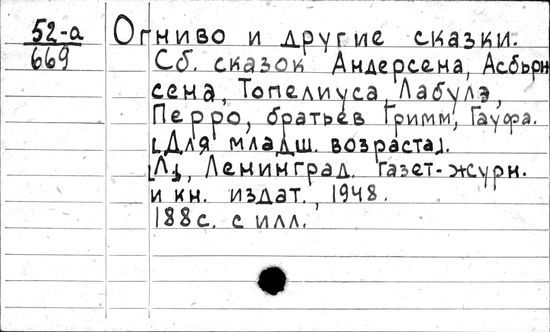 52-а Огниво и другие сказки.
669 Сб. сказок Андерсена, Асбьрн
сена, Топелиуса, Лабулэ,
Перро, братьев Гримм, Гауфа.
[Для младш. возраста].
[Л.], Ленинград. газет-журн.
и кн. издат., 1948.
188 с. с илл.